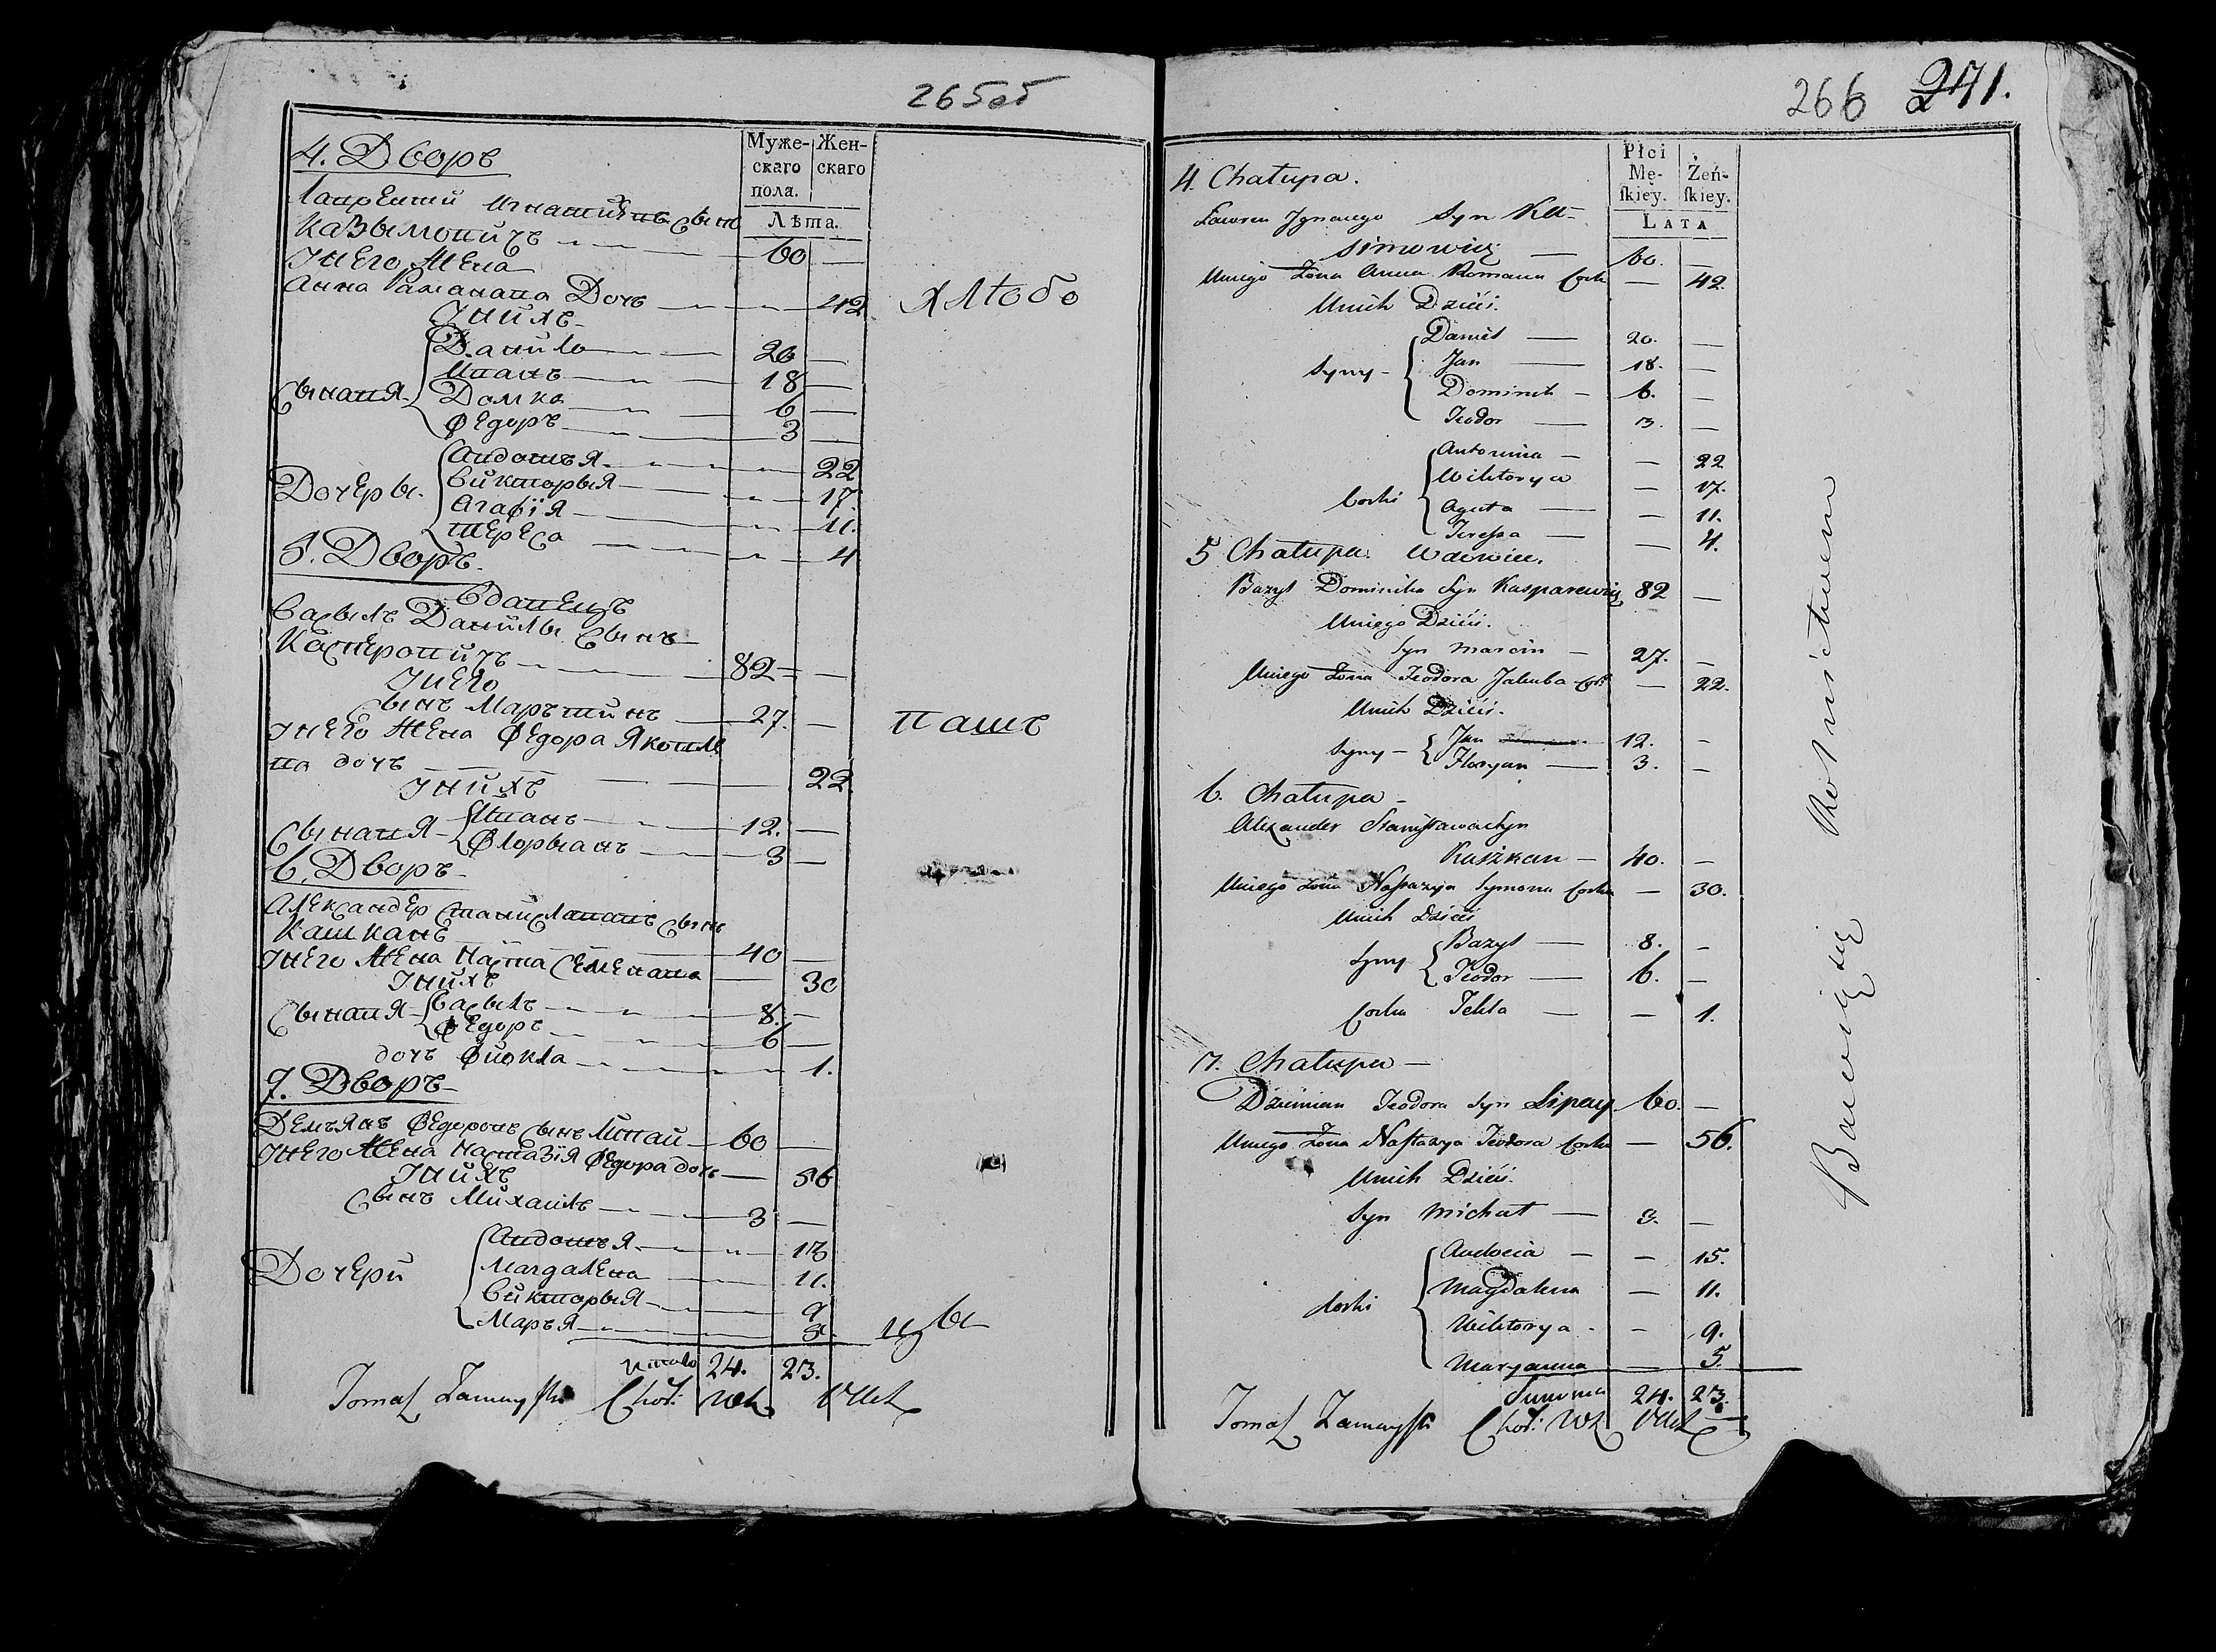 265об
4. Дворъ
Муже-скаго пола. Жен-скаго
Лѣта.
Лаврентий Игнатиевъ сынъ
Казымовичъ 60 —
У него жена
Анна Раманава Дочъ — 42
У нихъ
Сынавя
Данило 20 —
Иванъ 18 —
Домко 6 —
Федоръ 3 —
Дочеры
Авдотья — 22
Викторыя — 17.
Агафія — 11.
Тереса — 4
5. Дворъ
Вдавецъ
Васыль Данилы сынъ
Касперовичъ 82 —
У него
сынъ Мартинъ 27. —
У него жена Федора Яковле
ва дочъ — 22
У нихъ
Сынавя
Иванъ 12. —
Флорыанъ 3 —
6. Дворъ
Александер Станислававъ сынъ
Кашканъ 40 —
У него жена Наста Семенава — 30
У нихъ
Сынавя
Васыль 8. —
Федоръ 6 —
дочъ Фиокла — 1.
7. Дворъ
Демъянъ Федоровъ сынъ Липай 60 —
У него жена Настазія Федора дочъ — 56
У нихъ
Сынъ Михаилъ 3 —
Дочери
Авдотья — 15
Магдалена — 11.
Викторыя — 9
Марья — 5.
Итого 24. 23.
Tomasz Zamoyski Chor. Wk. Ułł
хлѣбо
паш
цы
266 271.
4. Chałupa.
Płci Mę-skiey. Żeń-skiey.
LATA
Ławren Jgnacego Syn Ka-
simowicz 60. —
U niego Żona Anna Romana Corka — 42.
U nich Dzieci.
Syny -
Daniel 20. —
Jan 18. —
Dominik 6. —
Teodor 3. —
Corki
Antonina — 22
Wiktorya — 17.
Agata — 11.
Teressa — 4.
5 Chałupa. Wdowiec.
Bazyl Dominika Syn Kasparewicz 82 —
U niego Dzieci.
Syn Marcin 27. —
U niego Żona Teodora Jakuba Cor: — 22.
U nich Dzieci.
Syny -
Jan 12. —
Floryan 3. —
6. Chałupa
Alexander Stanisława Syn
Kaszkan 40. —
U niego Żona Nastazya Symona Corka — 30.
U nich Dzieci
Syny
Bazyl 8. —
Teodor 6. —
Corka Tekla — 1.
7. Chałupa
Dziemian Teodora Syn Lipay. 60. —
U niego Żona Nastazya Teodora Corka — 56.
U nich Dzieci.
Syn Michał 3. —
Corki
Audocia — 15.
Magdalena — 11.
Wiktorya — 9.
Maryanna — 5.
Summa 24. 23.
Tomasz Zamoyski Chor. Wk Ułł
Rotmistrzem